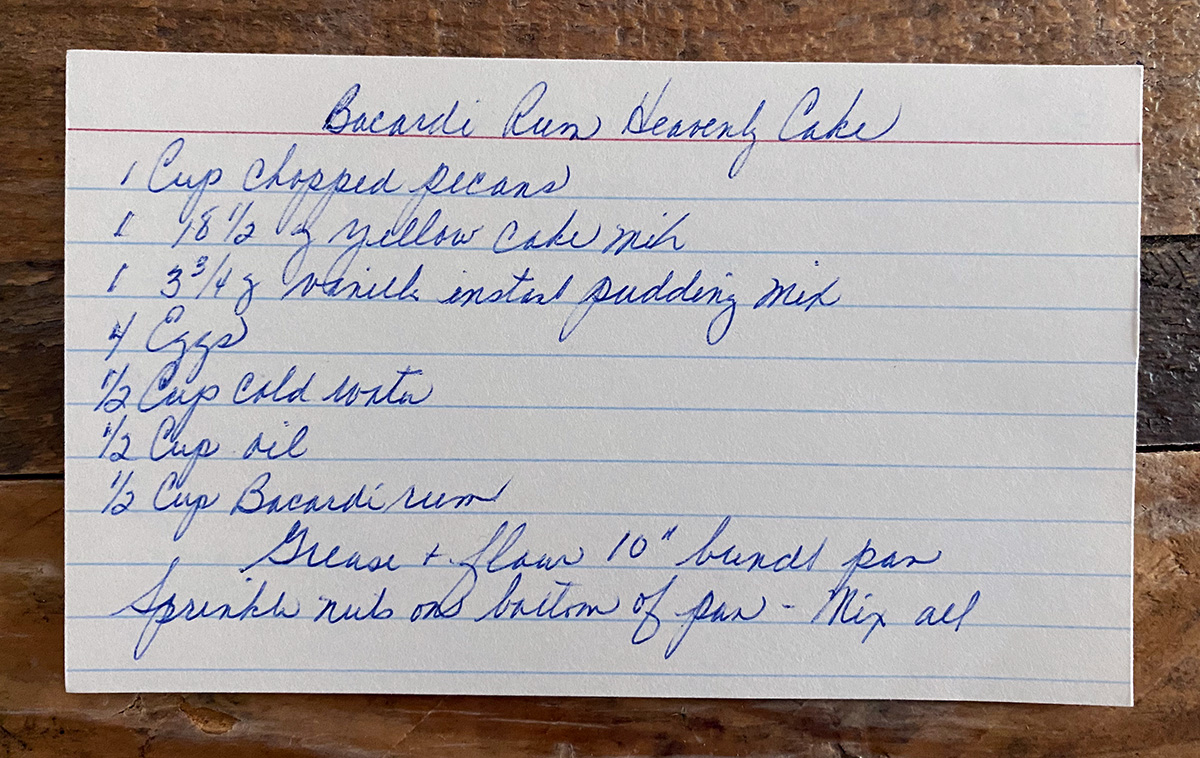 Bacardi Rum Heavenly Cake
1 Cup chopped pecans
1 18 1/2 z yellow cake mix
1 3 3/4 z vanilla instant pudding mix
4 Eggs
1/2 Cup cold water
1/2 Cup oil
1/2 Cup Bacardi rum
Grease + flour 10" bundt pan
Sprinkle nuts on bottom of pan - Mix all